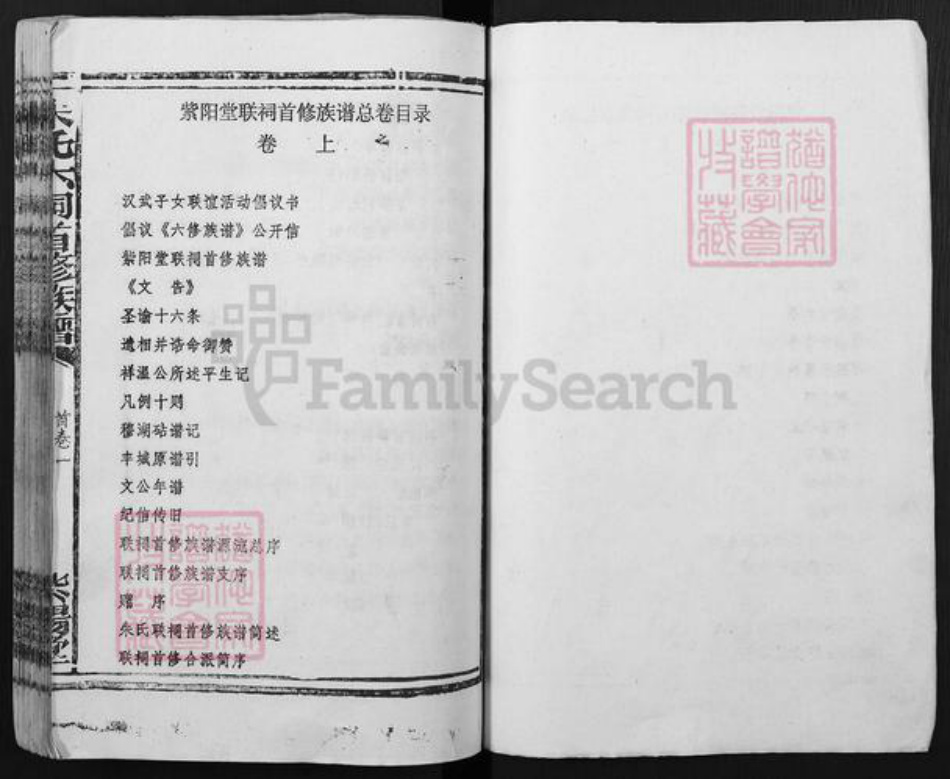 紫阳堂联祠首修族谱总卷目录
卷 上
汉武子女联谊活动倡议书
倡议《六修族谱》公开信
紫阳堂联祠首修族谱
《文 告》
圣谕十六条
遗相并诰命御赞
祥温公所述平生记
凡例十则
穆湖砧谱记
丰城原谱引
文公年谱
纪信传旧
联祠首修族谱源流总序
联祠首修族谱支序
赠 序
朱氏联祠首修族谱简述
联祠首修合派简序
朱氏六祠首修族谱
首卷一
紫阳堂
FamilySearch